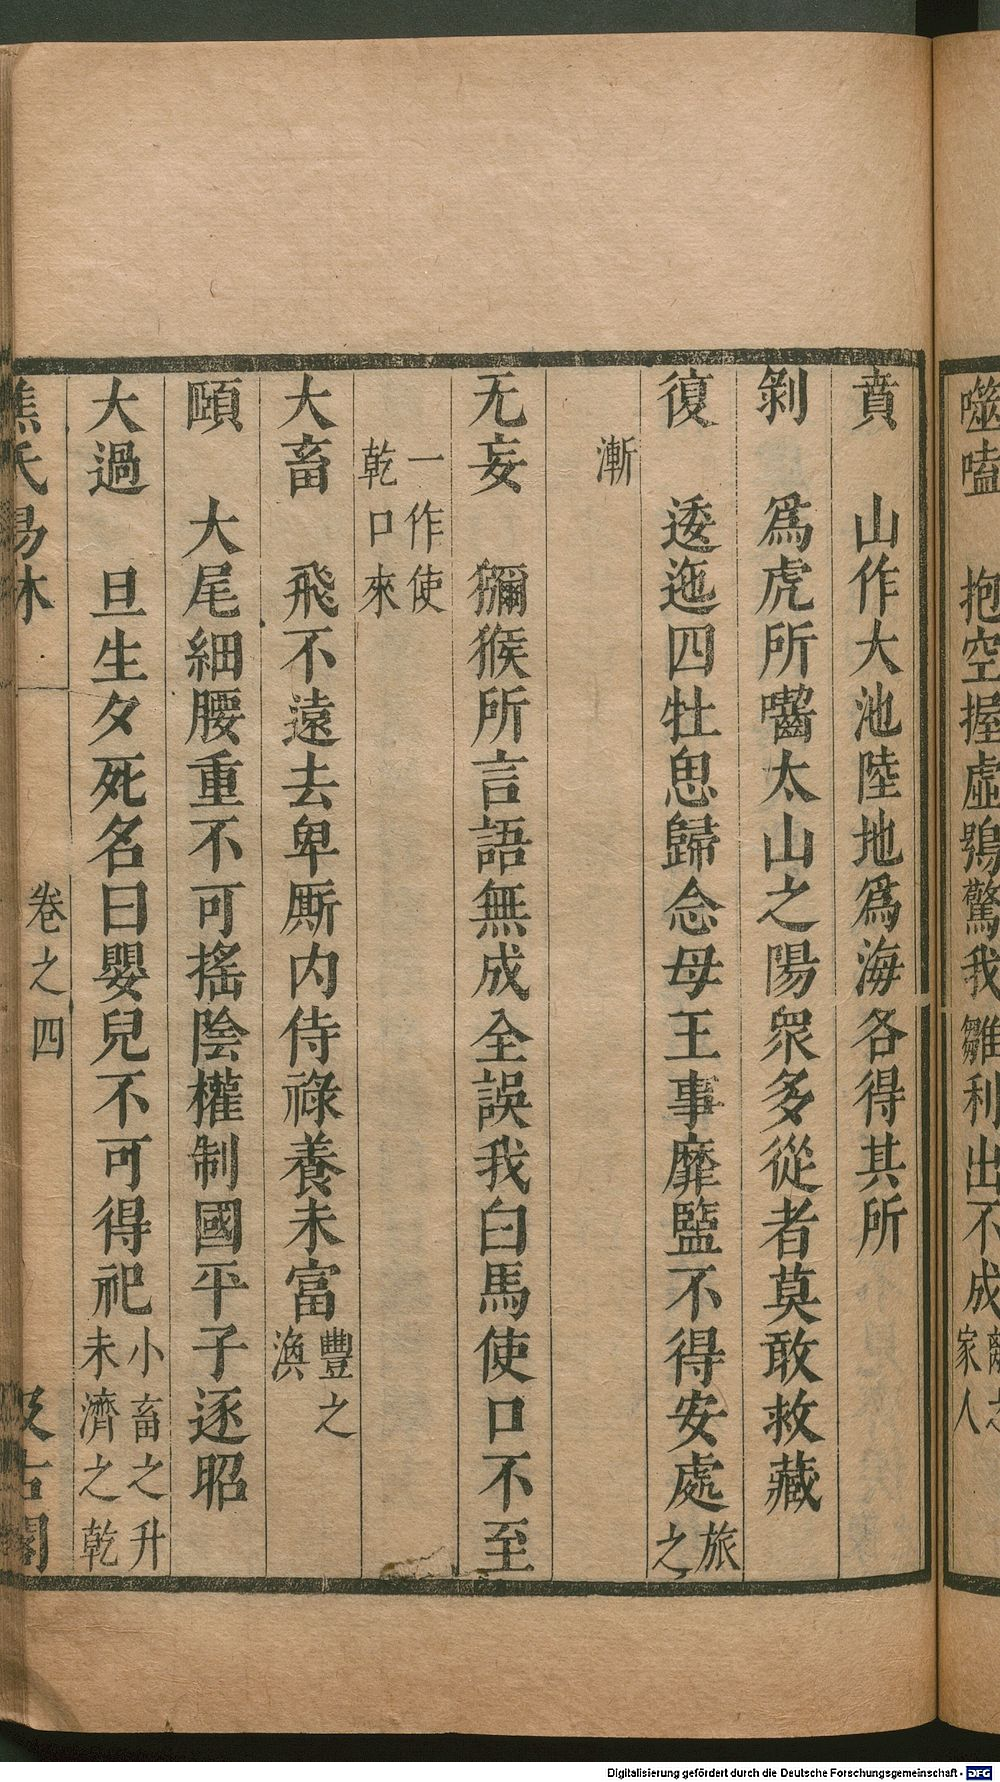 噬嗑　抱空握虛鴞驚我雛利出不成
家人
賁　山作大池陸地爲海各得其所
剝　爲虎所嚙太山之陽衆多從者莫敢救藏
復　逶迤四牡思歸念母王事靡盬不得安處旅之
漸
无妄　獮猴所言語無成全誤我白馬使口不至
一作使
乾口來
大畜　飛不遠去卑厮内侍祿養未富豐之渙
頤　大尾細腰重不可搖陰權制國平子逐昭
大過　旦生夕死名曰嬰兒不可得祀小畜之升未濟之乾
焦氏易林　卷之四　汲古閣
Digitalisierung gefördert durch die Deutsche Forschungsgemeinschaft - DFG